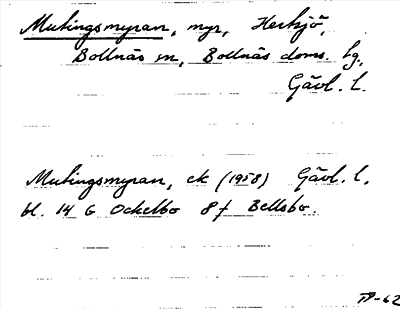 Mutingsmyran, myr, Herkjö,
Bollnäs sn, Bollnäs doms. hg,
Gävl. l.
Mutingsmyran, ek (1958) Gävl. l.
bl. 14 G Ockelbo 8 f Bellsbo.
TP-62